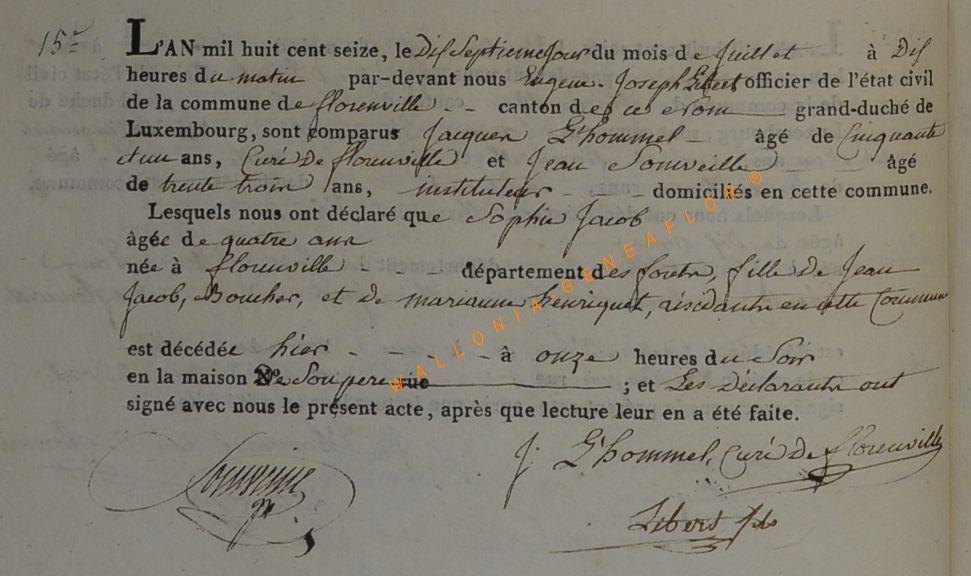 15e
L'AN mil huit cent seize, le Dix Septieme Jour du mois de Juillet à Dix
heures du matin par-devant nous Eugene Joseph Libert officier de l'état civil
de la commune de florenville - canton de ce nom grand-duché de
Luxembourg, sont comparus Jacques L'hommel - âgé de Cinquante
et un ans, Curé de florenville et Jean âgé
de trente trois ans, instituteur - - domiciliés en cette commune.
Lesquels nous ont déclaré que Sophie Jacob
âgée de quatre ans
née à florenville - - - département des forêts, fille de Jean
Jacob, Boucher, et de marianne henriquet, résidants en cette Commune
est décédée hier - - - - - à onze heures du Soir
en la maison de Son pere rue ; et Les Déclarants ont
signé avec nous le présent acte, après que lecture leur en a été faite.
J. L'hommel, Curé de florenville
Libert
WALLONIA GENEAFLOR ®